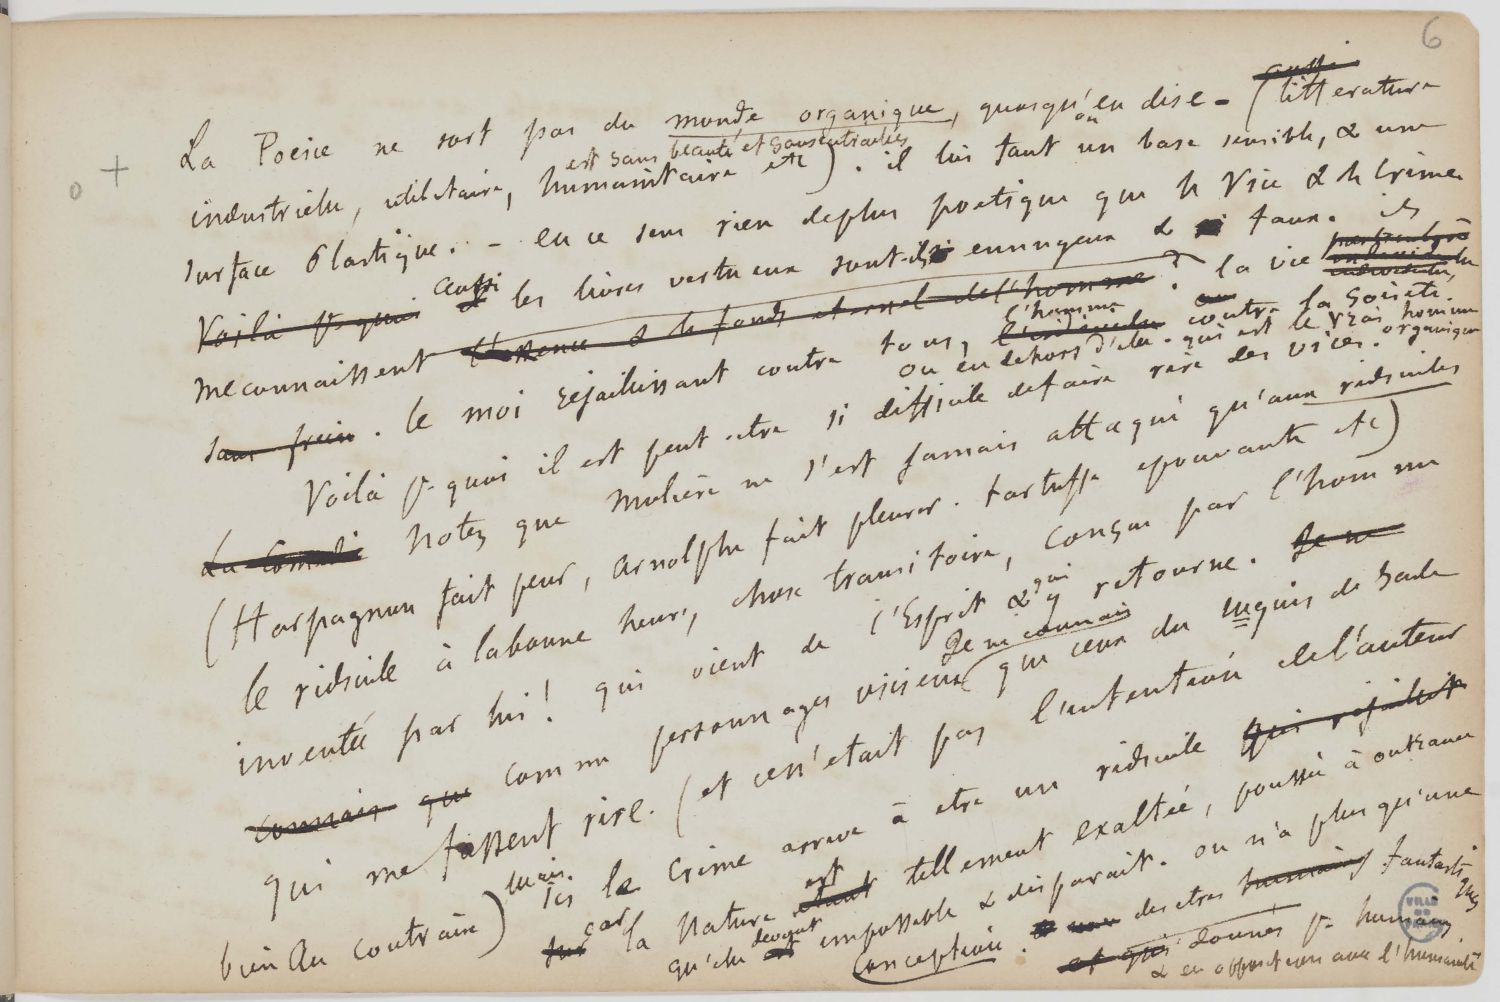 6
aussi
La Poesie ne sort pas du monde organique, quoiqu'on en dise - (litterature
est sans beauté et sans entrailles
industrielle, utilitaire, humanitaire etc). il lui faut un base sensible, & une
surface plastique. - en ce sens rien de plus poetique que le Vice & le Crime.
Voilà pr quoi aussi les livres vertueux sont-ils ennuyeux & faux. ils
meconnaissent l'essence & le fonds eternel de l'homme? la vie individuelle
sans frein. le moi rejaillissant contre tous, l'individu l'homme contre la Société.
ou en dehors d'elle. qui est le vrai homme organique
Voilà pr quoi il est peut-etre si difficile de faire rire des vices.
La Comedie Notez que Moliere ne s'est jamais attaqué qu'aux ridicules
(Harpagnon fait peur, Arnolphe fait pleurer. tartuffe epouvante etc)
le ridicule à la bonne heure, chose transitoire, conçue par l'homme
inventée par lui! qui vient de l'Esprit & qui y retourne. Je ne
connais que comme personnages vicieux (Je ne connais que ceux du mquis de Sade
qui me fassent rire. (et ce n'etait pas l'intention de l'auteur
bien Au contraire) mais Ici le Crime arrive à etre un ridicule qui rejaillit
sur car la Nature etant est tellement exaltée, poussée à outrance
qu'elle est devient impossible & disparait. on n'a plus qu'une
conception. & des etres humains fantastiques
et qui donnés pr humains
& en opposition avec l'humanité
VILLE DE